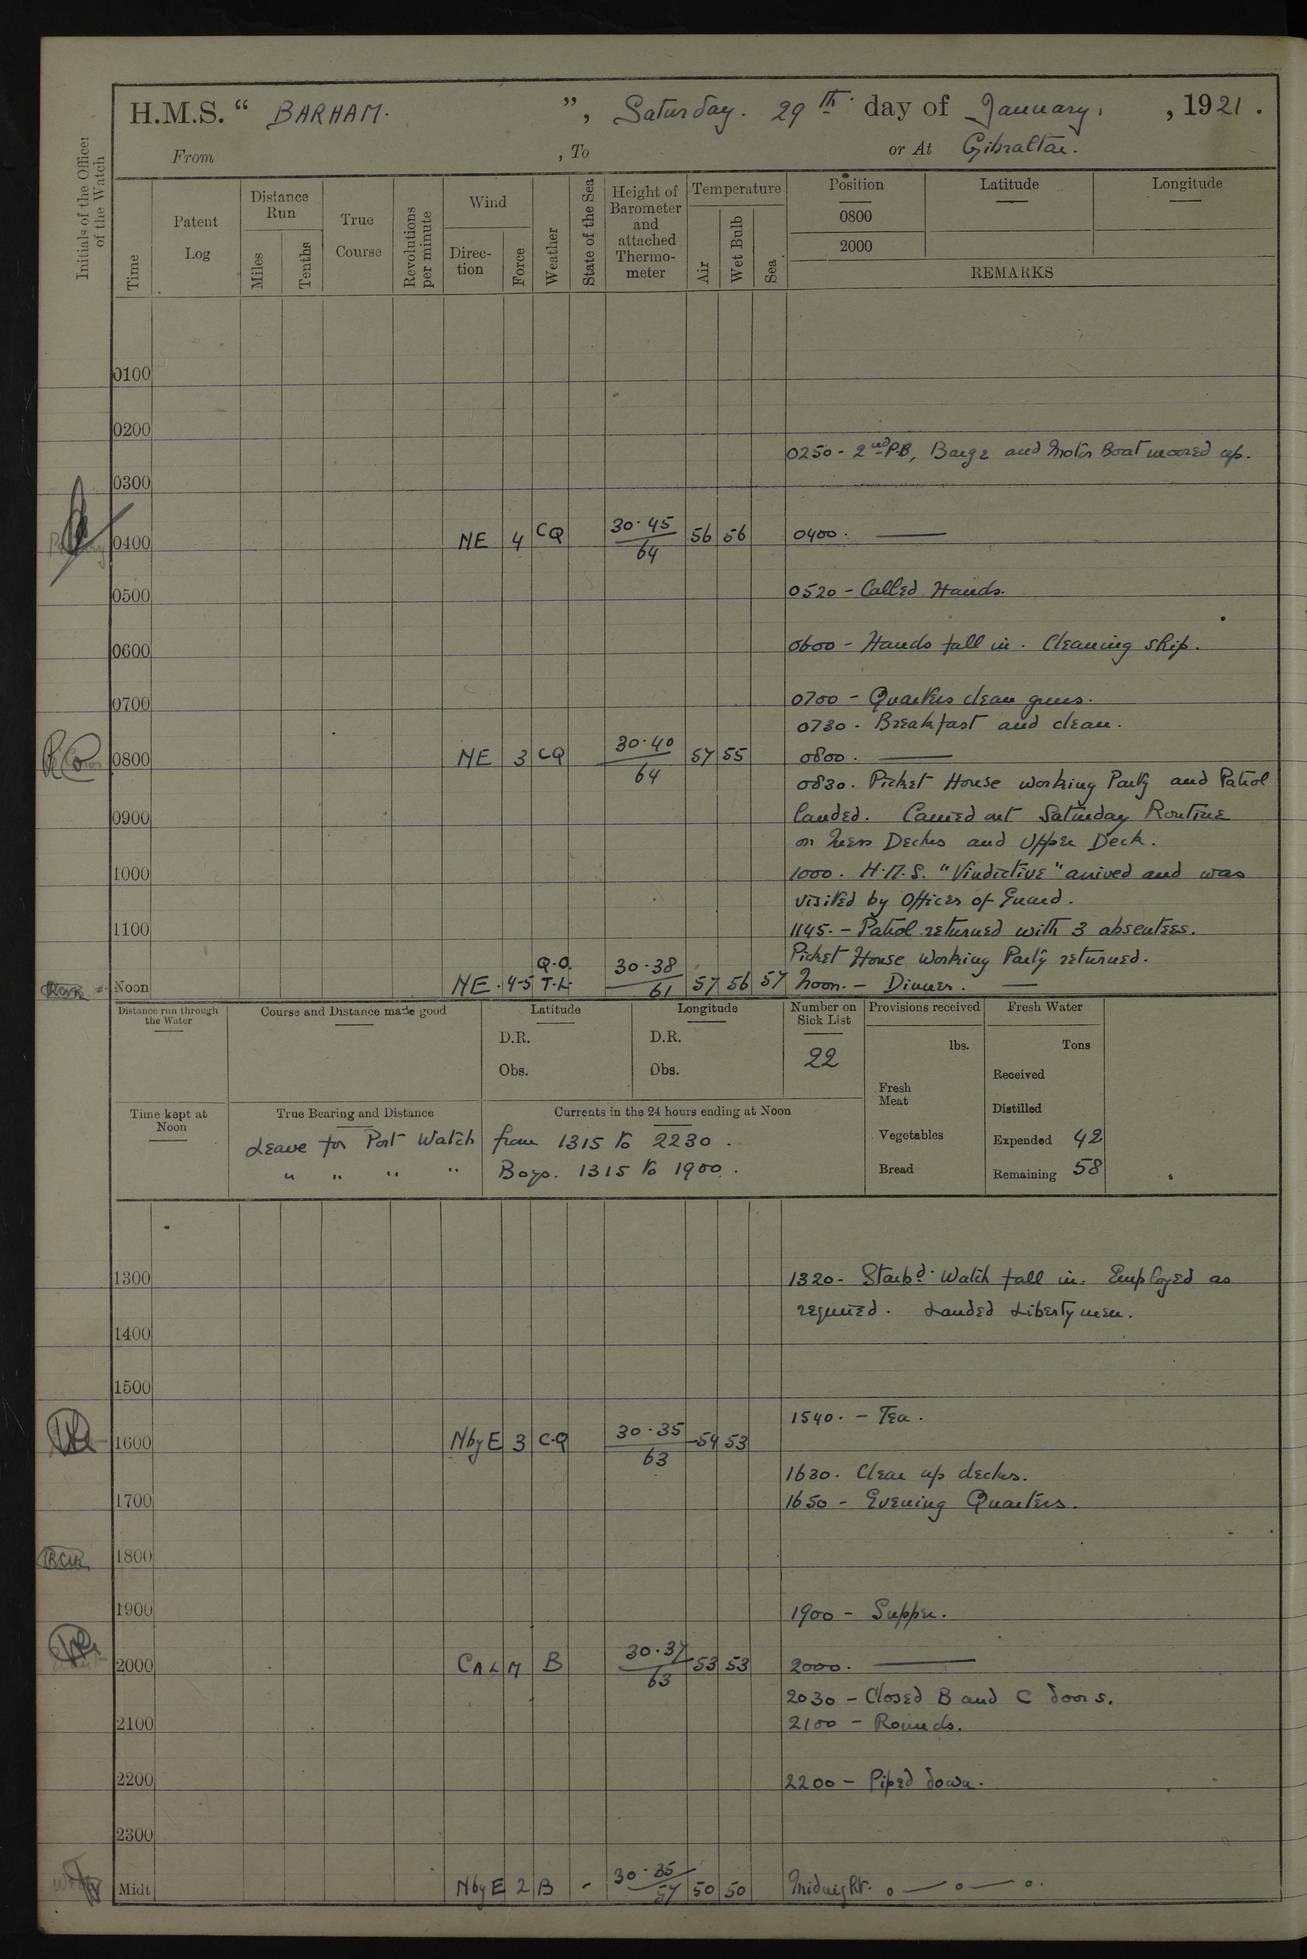 H.M.S. “ BARHAM. ”, Saturday. 29th. day of January. , 1921.
From , To or At Gibraltar.
Initials of the Officer of the Watch
Time
Patent Log
Distance Run
Miles
Tenths
True Course
Revolutions per minute
Wind
Direc-tion
Force
Weather
State of the Sea
Height of Barometer and attached Thermo-meter
Temperature
Air
Wet Bulb
Sea
Position
0800
2000
Latitude
Longitude
REMARKS
0100
0200
0250 - 2nd P.B, Barge and Motor Boat moored up.
0300
0400 NE 4 CQ 30.45 / 64 56 56 0400. ——
0520 - Called Hands.
0500
0600 - Hands fall in. Cleaning ship.
0600
0700 - Quarters clean guns.
0700
0730. Breakfast and clean.
0800 NE 3 CQ 30.40 / 64 57 55 0800. ——
0830. Picket House working Party and Patrol
0900 landed. Carried out Saturday Routine
on Mess Decks and Upper Deck.
1000 1000. H.M.S. "Vindictive" arrived and was
visited by Officer of Guard.
1100 1145. - Patrol returned with 3 absentees.
Picket House Working Party returned.
Noon NE. 4-5 Q.O. T.L. 30.38 / 61 57 56 57 Noon. - Dinner. ——
Distance run through the Water
Course and Distance made good
Latitude
D.R.
Obs.
Longitude
D.R.
Obs.
Number on Sick List
22
Provisions received
lbs.
Fresh Meat
Vegetables
Bread
Fresh Water
Tons
Received
Distilled
Expended 42
Remaining 58
Time kept at Noon
True Bearing and Distance
Currents in the 24 hours ending at Noon
Leave for Port Watch from 1315 to 2230.
" " " " Boys. 1315 to 1900.
1300 1320 - Starbd. Watch fall in. Employed as
required. Landed Libertymen.
1400
1500
1540. - Tea.
1600 NbyE 3 C.Q 30.35 / 63 54 53
1630. Clear up decks.
1700 1650 - Evening Quarters.
1800
1900 1900 - Supper.
2000 CALM B 30.37 / 63 53 53 2000. ——
2030 - Closed B and C doors.
2100 2100 - Rounds.
2200 2200 - Piped down.
2300
Midt. NbyE 2 B - 30.35 / 57 50 50 Midnight.